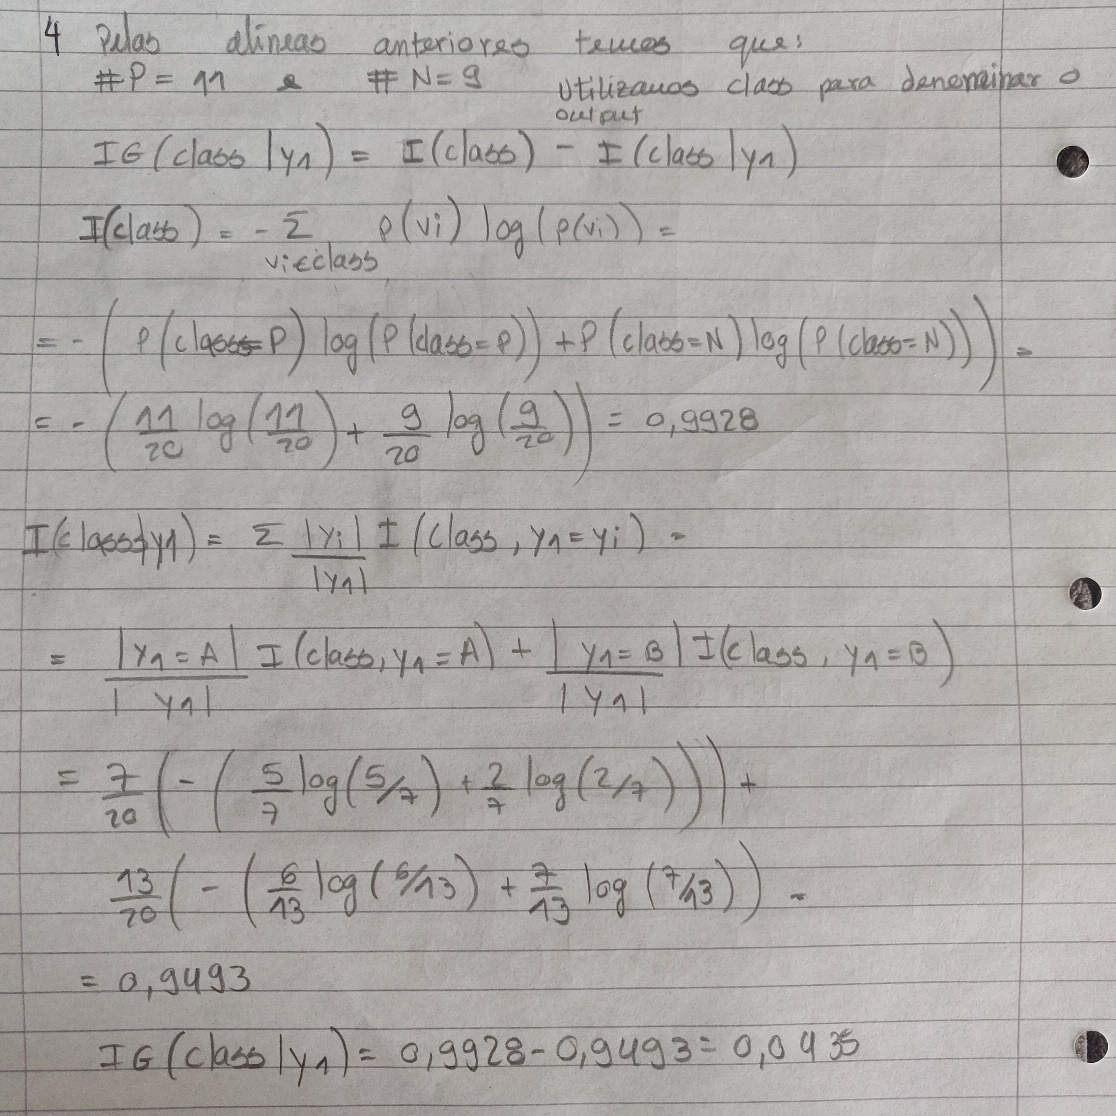 4 Pelas alíneas anteriores temos que:
#P = 11 e #N = 9 Utilizamos class para denominar o
output
IG(class|y1) = I(class) - I(class|y1)
I(class) = - Σ p(vi) log(p(vi)) =
vi∈class
= - ( P(class=P) log(P(class=P)) + P(class=N) log(P(class=N)) ) =
= - ( 11/20 log(11/20) + 9/20 log(9/20) ) = 0,9928
I(class|y1) = Σ |yi|/|y1| I(class, y1=yi) =
= |y1=A|/|y1| I(class, y1=A) + |y1=B|/|y1| I(class, y1=B)
= 7/20 ( - ( 5/7 log(5/7) + 2/7 log(2/7) ) ) +
13/20 ( - ( 6/13 log(6/13) + 7/13 log(7/13) ) =
= 0,9493
IG(class|y1) = 0,9928 - 0,9493 = 0,0435